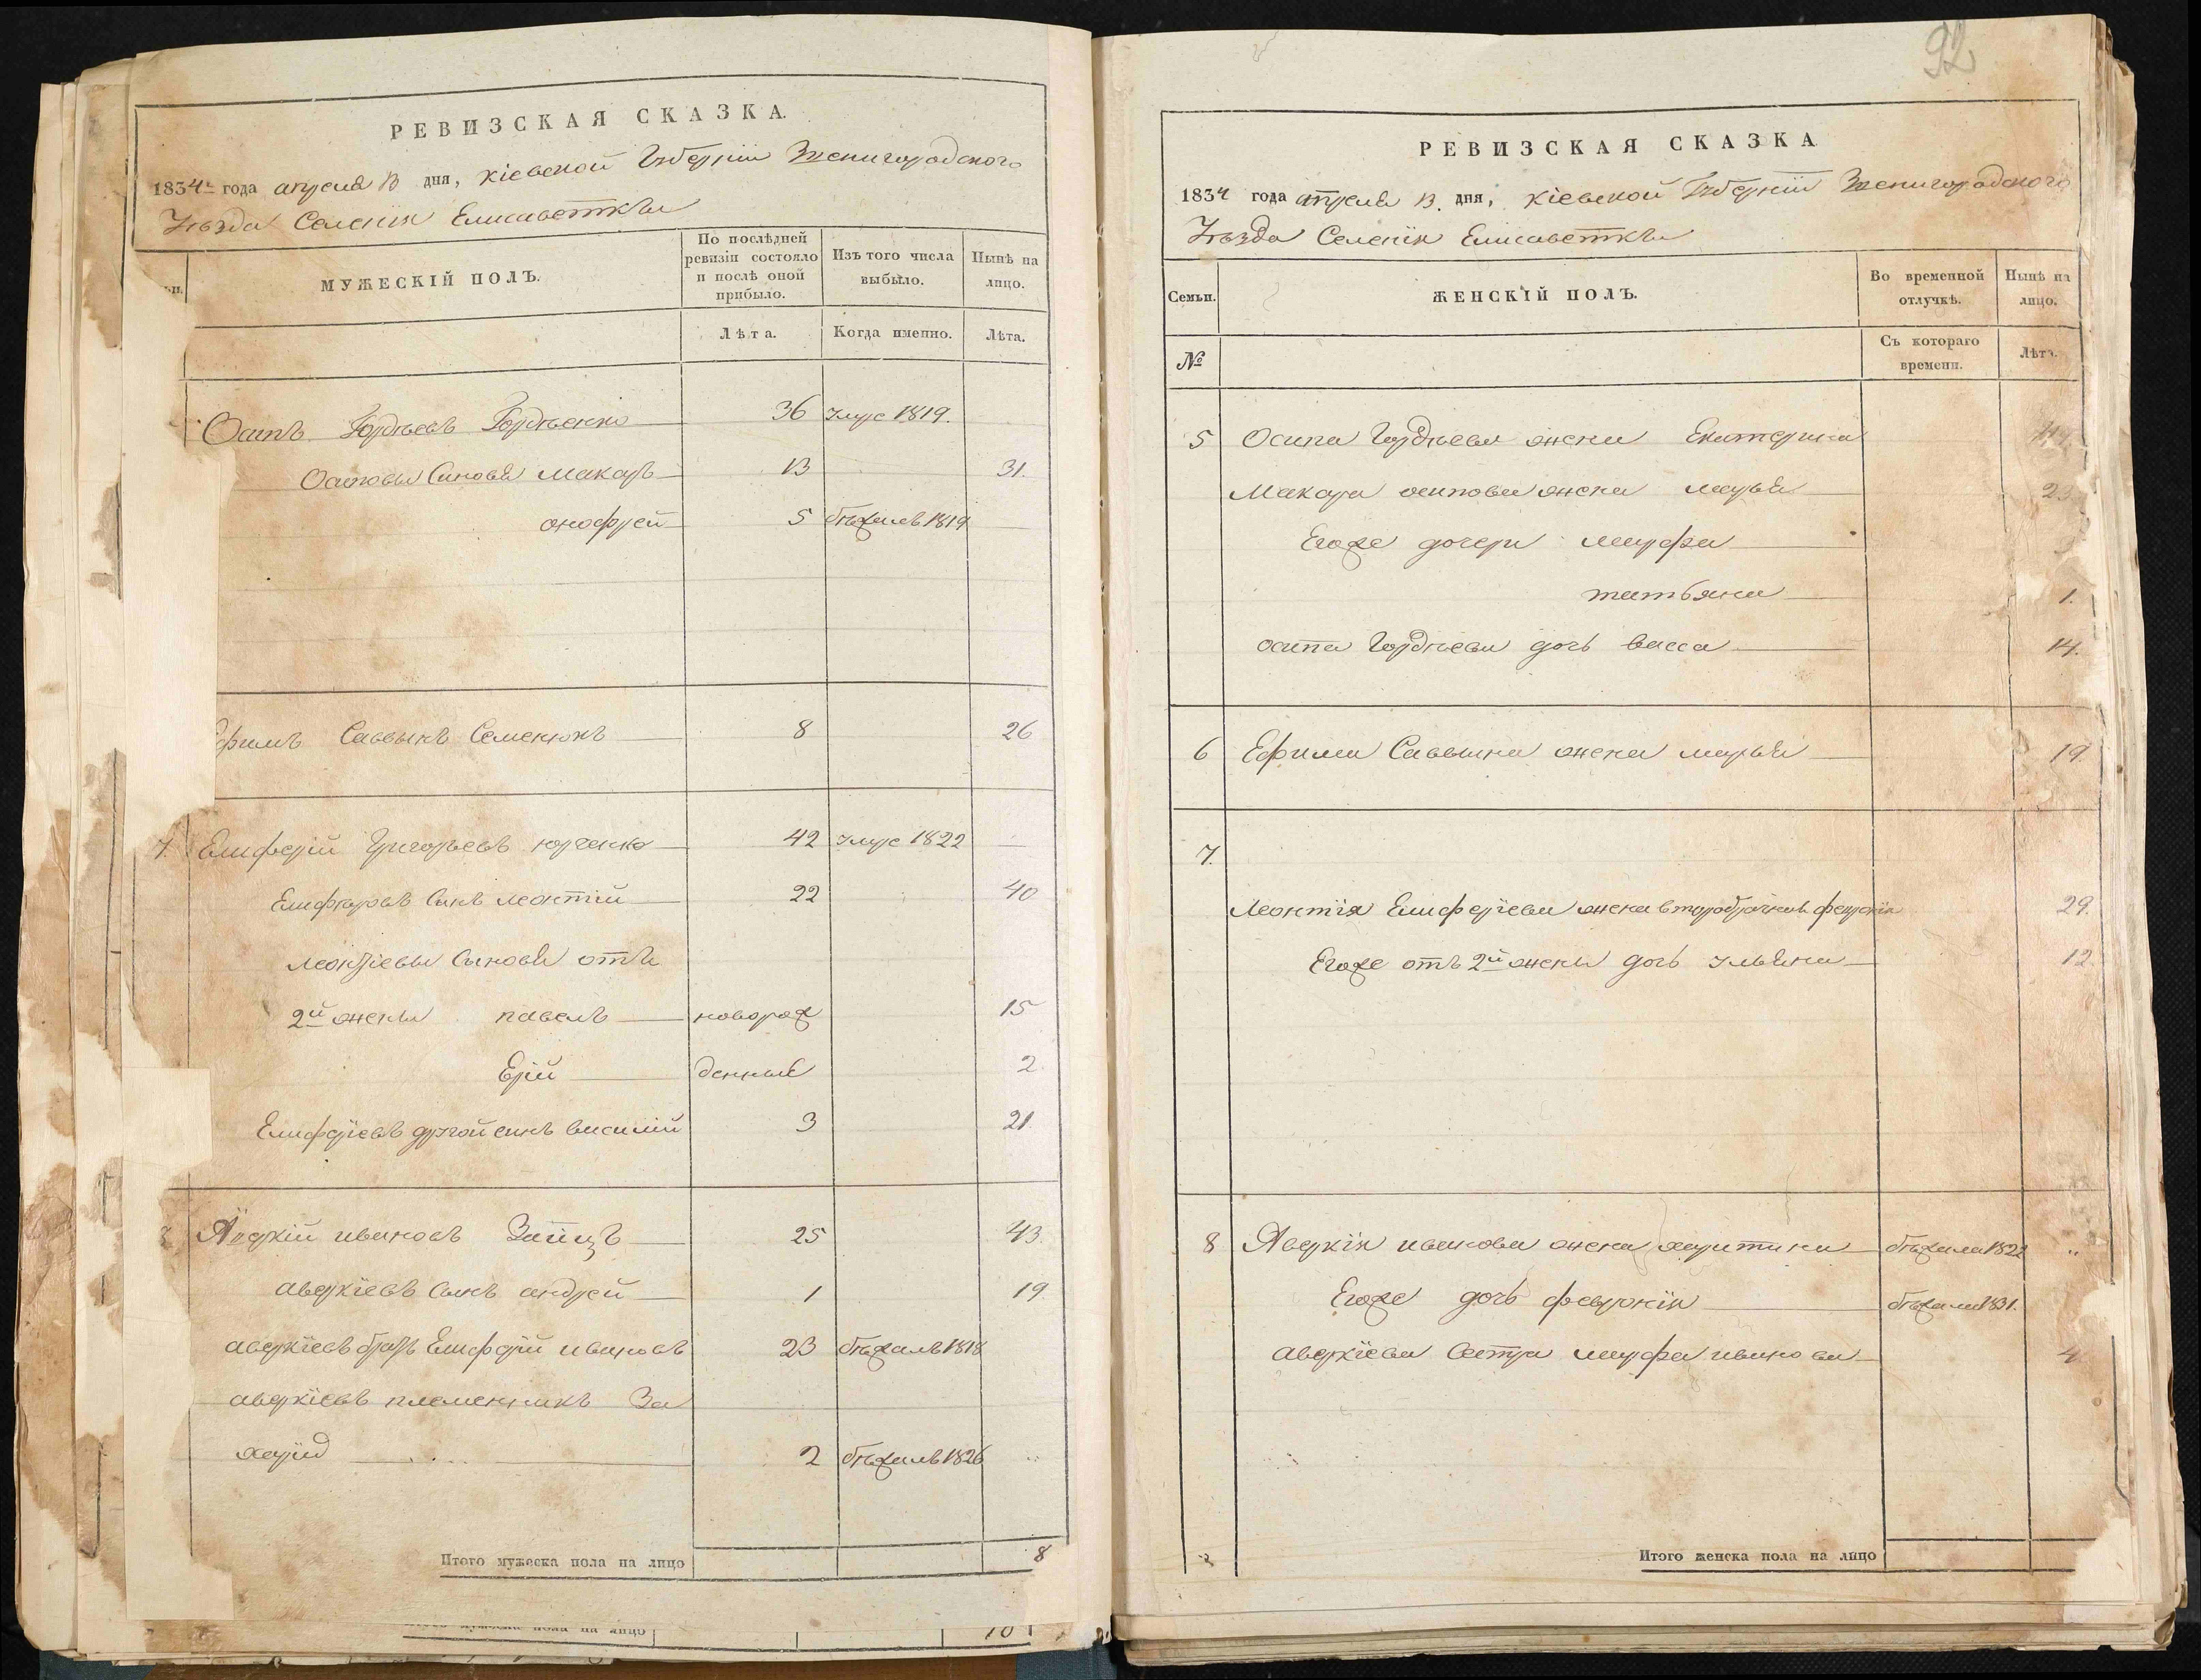 92
РЕВИЗСКАЯ СКАЗКА.
1834 года апреля 13 дня, Кіевской Губерніи Звенигородского
Уѣзда Селенія Елисаветки
МУЖЕСКІЙ ПОЛЪ.
По послѣдней ревизіи состояло и послѣ оной прибыло.
Изъ того числа выбыло.
Нынѣ на лицо.
Лѣта.
Когда именно.
Лѣта.
Осипъ Гордѣевъ Гордѣенко 36 умре 1819.
Осиповы Синовья Макаръ 13 31.
онофрей 5 бѣжалъ 1819
Саввынъ Семенюкъ 8 26
7. Елиферій Григорьевъ юрченко 42 умре 1822
Сынъ Леонтій 22 40
Леонтіевы Сыновья отъ
2й жены павелъ новорож 15
денные 2
Елиферіевъ другой синъ василій 3 21
Ивановъ Заицъ 25 43.
авержіевъ Сынъ андрей 1 19
аверкіевъ братъ Елиферій ивановъ 23 бѣжалъ 1818
аверкіевъ племенникъ За
харид 2 бѣжалъ 1826
Итого мужеска пола на лицо 8
РЕВИЗСКАЯ СКАЗКА
1834 года апреля 13. дня, Кіевской Губерніи Звенигородского
Уѣзда Селенія Елисаветки
Семьи.
ЖЕНСКІЙ ПОЛЪ.
Во временной отлучкѣ.
Нынѣ на лицо.
№
Съ котораго времени.
Лѣта.
5 Осипа Гордѣева жена Екатерина
Макара осипова жена марья 23
Егоже дочери марфа
татьяна 1.
осипа Гордѣева дочь васса 14.
6 Ефима Саввина жена марья 19.
7.
Леонтія Елиферіева жена второбрачная февронія 29.
Егоже отъ 2й жены дочь ульяна 12.
8 Аверкія иванова жена харитина бѣжала 1822
Егоже дочь февронія бѣжала 1831.
аверкіева Сестра марфа иванова
Итого женска пола на лицо